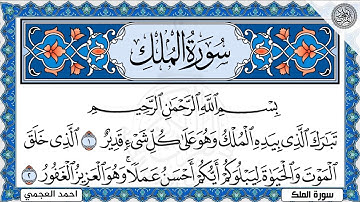 سُورَةُ الْمُلْكِ
بِسْمِ اللَّهِ الرَّحْمَٰنِ الرَّحِيمِ
تَبَارَكَ الَّذِي بِيَدِهِ الْمُلْكُ وَهُوَ عَلَىٰ كُلِّ شَيْءٍ قَدِيرٌ ١ الَّذِي خَلَقَ
الْمَوْتَ وَالْحَيَوٰةَ لِيَبْلُوَكُمْ أَيُّكُمْ أَحْسَنُ عَمَلًا ۚ وَهُوَ الْعَزِيزُ الْغَفُورُ ٢
سورة الملك
احمد العجمي